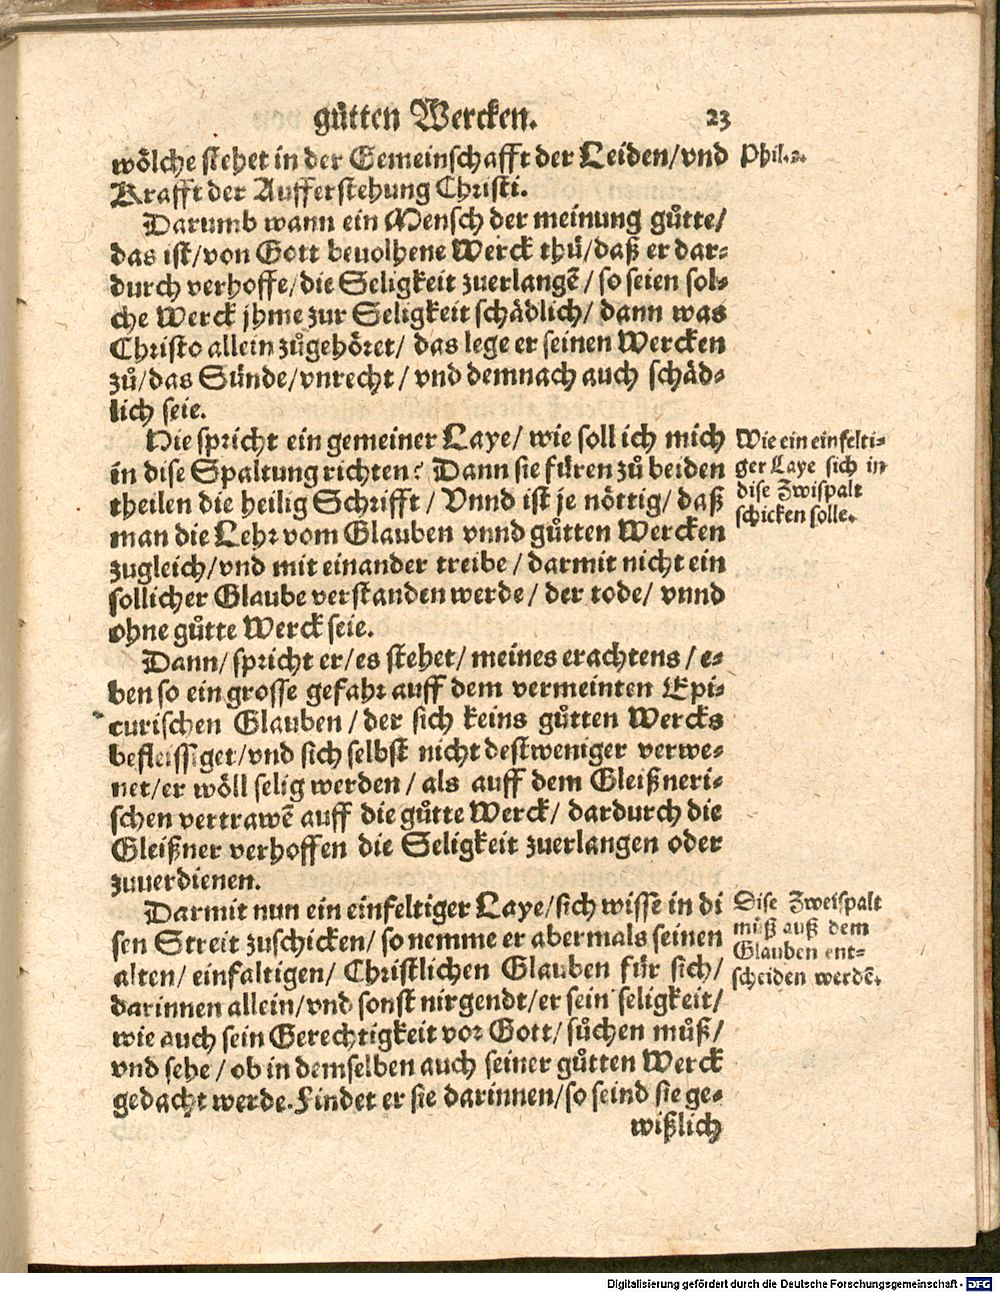 gůtten Wercken. 23
wölche stehet in der Gemeinschafft der Leiden/vnd
Phil. 2.
Krafft der Aufferstehung Christi.
Darumb wann ein Mensch der meinung gůtte/
das ist/von Gott beuolhene Werck thů/daß er dar-
durch verhoffe/die Seligkeit zuerlangẽ/so seien sol-
che Werck jhme zur Seligkeit schädlich/ dann was
Christo allein zůgehöret/ das lege er seinen Wercken
zů/das Sünde/vnrecht/ vnd demnach auch schäd-
lich seie.
Hie spricht ein gemeiner Laye/ wie soll ich mich
in dise Spaltung richten? Dann sie füren zů beiden
theilen die heilig Schrifft/ Vnnd ist je nöttig/ daß
man die Lehr vom Glauben vnnd gůtten Wercken
zugleich/vnd mit einander treibe/ darmit nicht ein
sollicher Glaube verstanden werde/ der tode/ vnnd
ohne gůtte Werck seie.
Wie ein einfelti-
ger Laye sich in
dise Zwispalt
schicken solle.
Dann/ spricht er/es stehet/ meines erachtens/ e-
ben so ein grosse gefahr auff dem vermeinten Epi-
curischen Glauben/der sich keins gůtten Wercks
befleissiget/vnd sich selbst nicht destweniger verwe-
net/er wöll selig werden/ als auff dem Gleißneri-
schen vertrawẽ auff die gůtte Werck/ dardurch die
Gleißner verhoffen die Seligkeit zuerlangen oder
zuuerdienen.
Darmit nun ein einfeltiger Laye/sich wisse in di
sen Streit zuschicken/ so nemme er abermals seinen
alten/ einfaltigen/ Christlichen Glauben für sich/
darinnen allein/vnd sonst nirgendt/er sein seligkeit/
wie auch sein Gerechtigkeit vor Gott/ sůchen můß/
vnd sehe/ ob in demselben auch seiner gůtten Werck
gedacht werde. Findet er sie darinnen/so seind sie ge-
Dise Zweispalt
můß auß dem
Glauben ent-
scheiden werdẽ.
wißlich
Digitalisierung gefördert durch die Deutsche Forschungsgemeinschaft - DFG